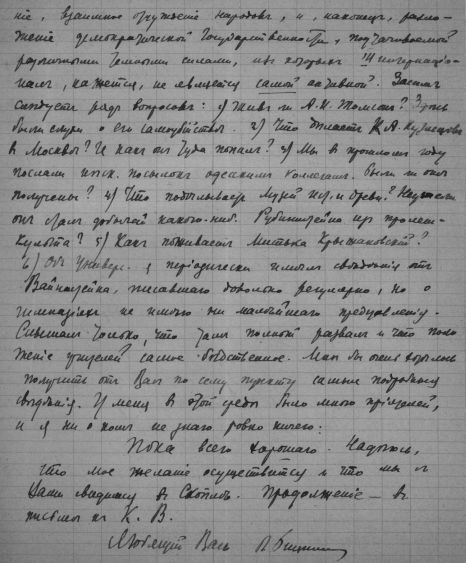 ніе, взаимное отчужденіе народовъ, и, наконецъ, разло-
женіе демократической государственности, подтачиваемой
различными темными силами, изъ которыхъ III интернаціо-
налъ, кажется, не является самой активной. Затѣмъ
слѣдуетъ рядъ вопросовъ: 1) Живъ ли А. Н. Толстой? Здѣсь
были слухи о его самоубійствѣ. 2) Что дѣлаетъ К. А. Кузнецовъ
въ Москвѣ? И какъ онъ туда попалъ? 3) Мы въ прошломъ году
послали нѣск. посылокъ одесскимъ коллегамъ. Были ли онѣ
получены? 4) Что подѣлываетъ музей ист. и древн.? Неужели
онъ сталъ добычей какого-ниб. Рубинштейна изъ пролет-
культа? 5) Какъ поживаетъ Митька Крыжановскій?
6) Объ универс. я періодически имѣлъ свѣдѣнія отъ
Вайнштейна, писавшаго довольно регулярно, но о
гимназіяхъ не имѣю ни малѣйшаго представленія.
Слышалъ только, что тамъ полный развалъ и что поло-
женіе учителей самое бѣдственное. Мнѣ бы очень хотѣлось
получить отъ Васъ по сему пункту самыя подробныя
свѣдѣнія. У меня въ этой средѣ было много пріятелей,
и я ни о комъ не знаю ровно ничего.
Пока всего хорошаго. Надѣюсь,
что мое желаніе осуществится и что мы съ
Вами увидимся въ Скоплѣ. Продолженіе — въ
письмѣ къ К. В.
Любящій Васъ П. Бицилли